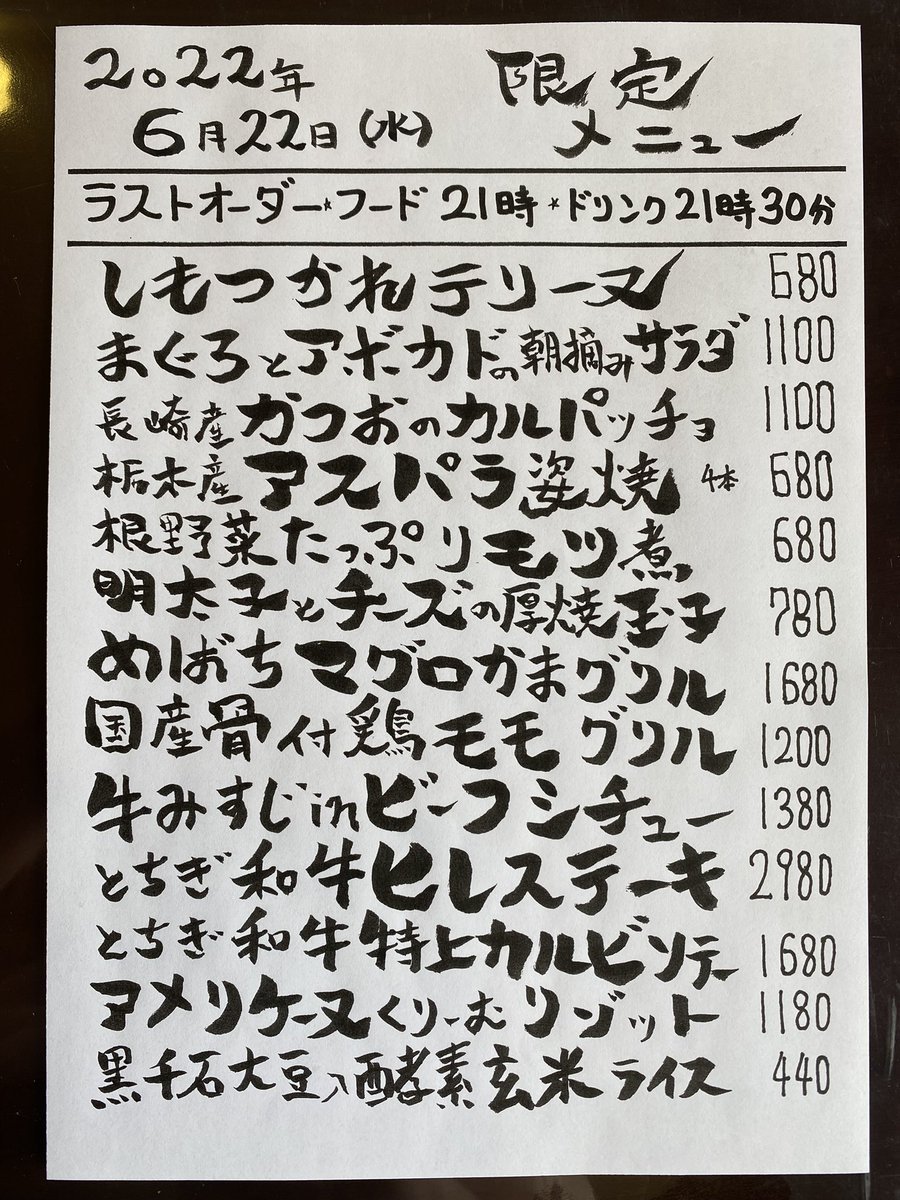 2022年 限定
6月22日(水) メニュー
ラストオーダー*フード 21時*ドリンク21時30分
しもつかれテリーヌ 680
まぐろとアボカドの朝摘みサラダ 1100
長崎産かつおのカルパッチョ 1100
栃木産アスパラ姿焼 4本 680
根野菜たっぷりモツ煮 680
明太子とチーズの厚焼玉子 780
めばちマグロかまグリル 1680
国産骨付鶏モモグリル 1200
牛みすじinビーフシチュー 1380
とちぎ和牛ヒレステーキ 2980
とちぎ和牛特上カルビソテー 1680
アメリケーヌくりーむリゾット 1180
黒千石大豆入酵素玄米ライス 440